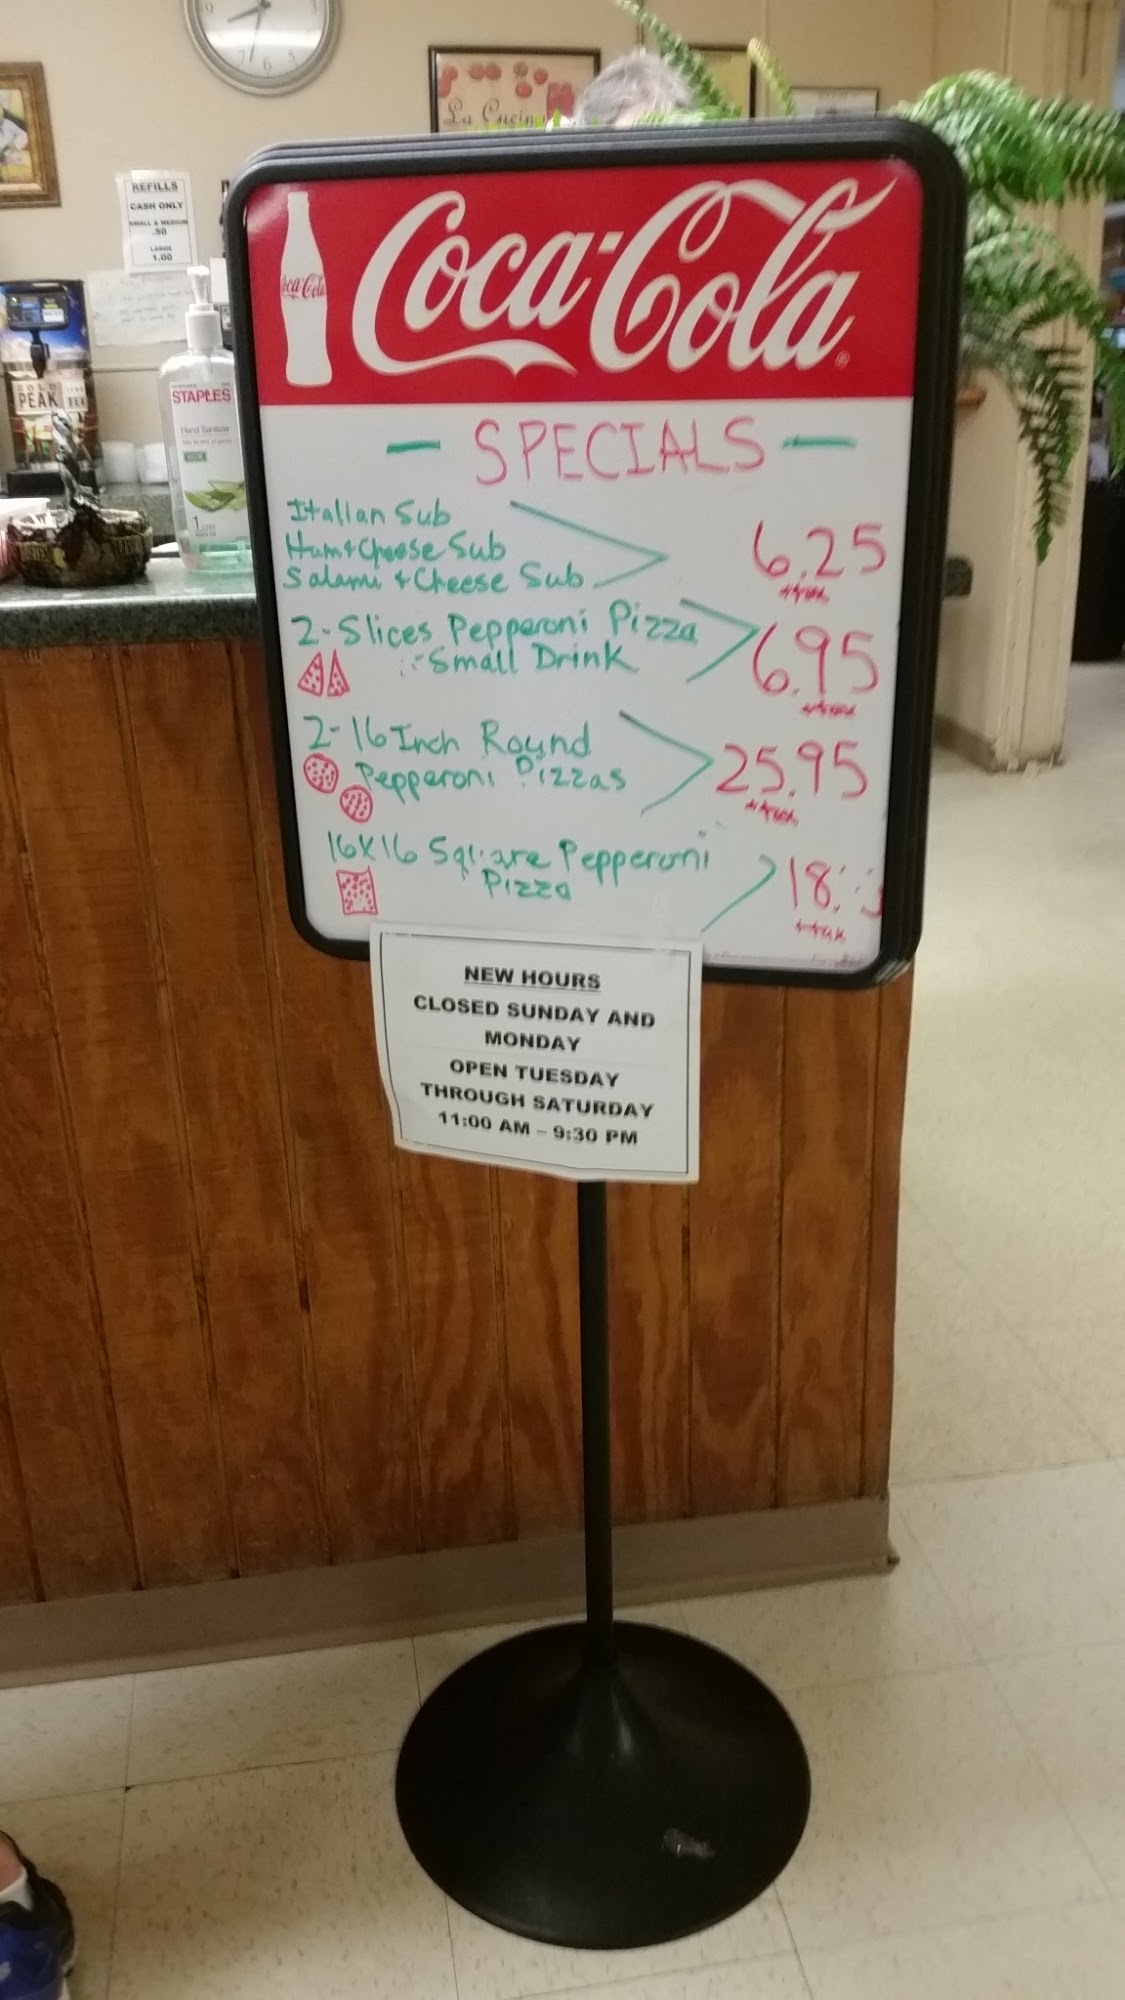 La Cucin
REFILLS
CASH ONLY
SMALL & MEDIUM
.50
LARGE
1.00
GOLD
PEAK
TEA
STAPLES
Hand Sanitizer
1 LITER
Coca-Cola
Coca-Cola®
- SPECIALS -
Italian Sub
Ham & Cheese Sub
Salami & Cheese Sub
6.25
+tax
2-Slices Pepperoni Pizza
Small Drink
6.95
+tax
2-16 Inch Round
Pepperoni Pizzas
25.95
+tax
16X16 Square Pepperoni
Pizza
18.
+tax
NEW HOURS
CLOSED SUNDAY AND
MONDAY
OPEN TUESDAY
THROUGH SATURDAY
11:00 AM – 9:30 PM